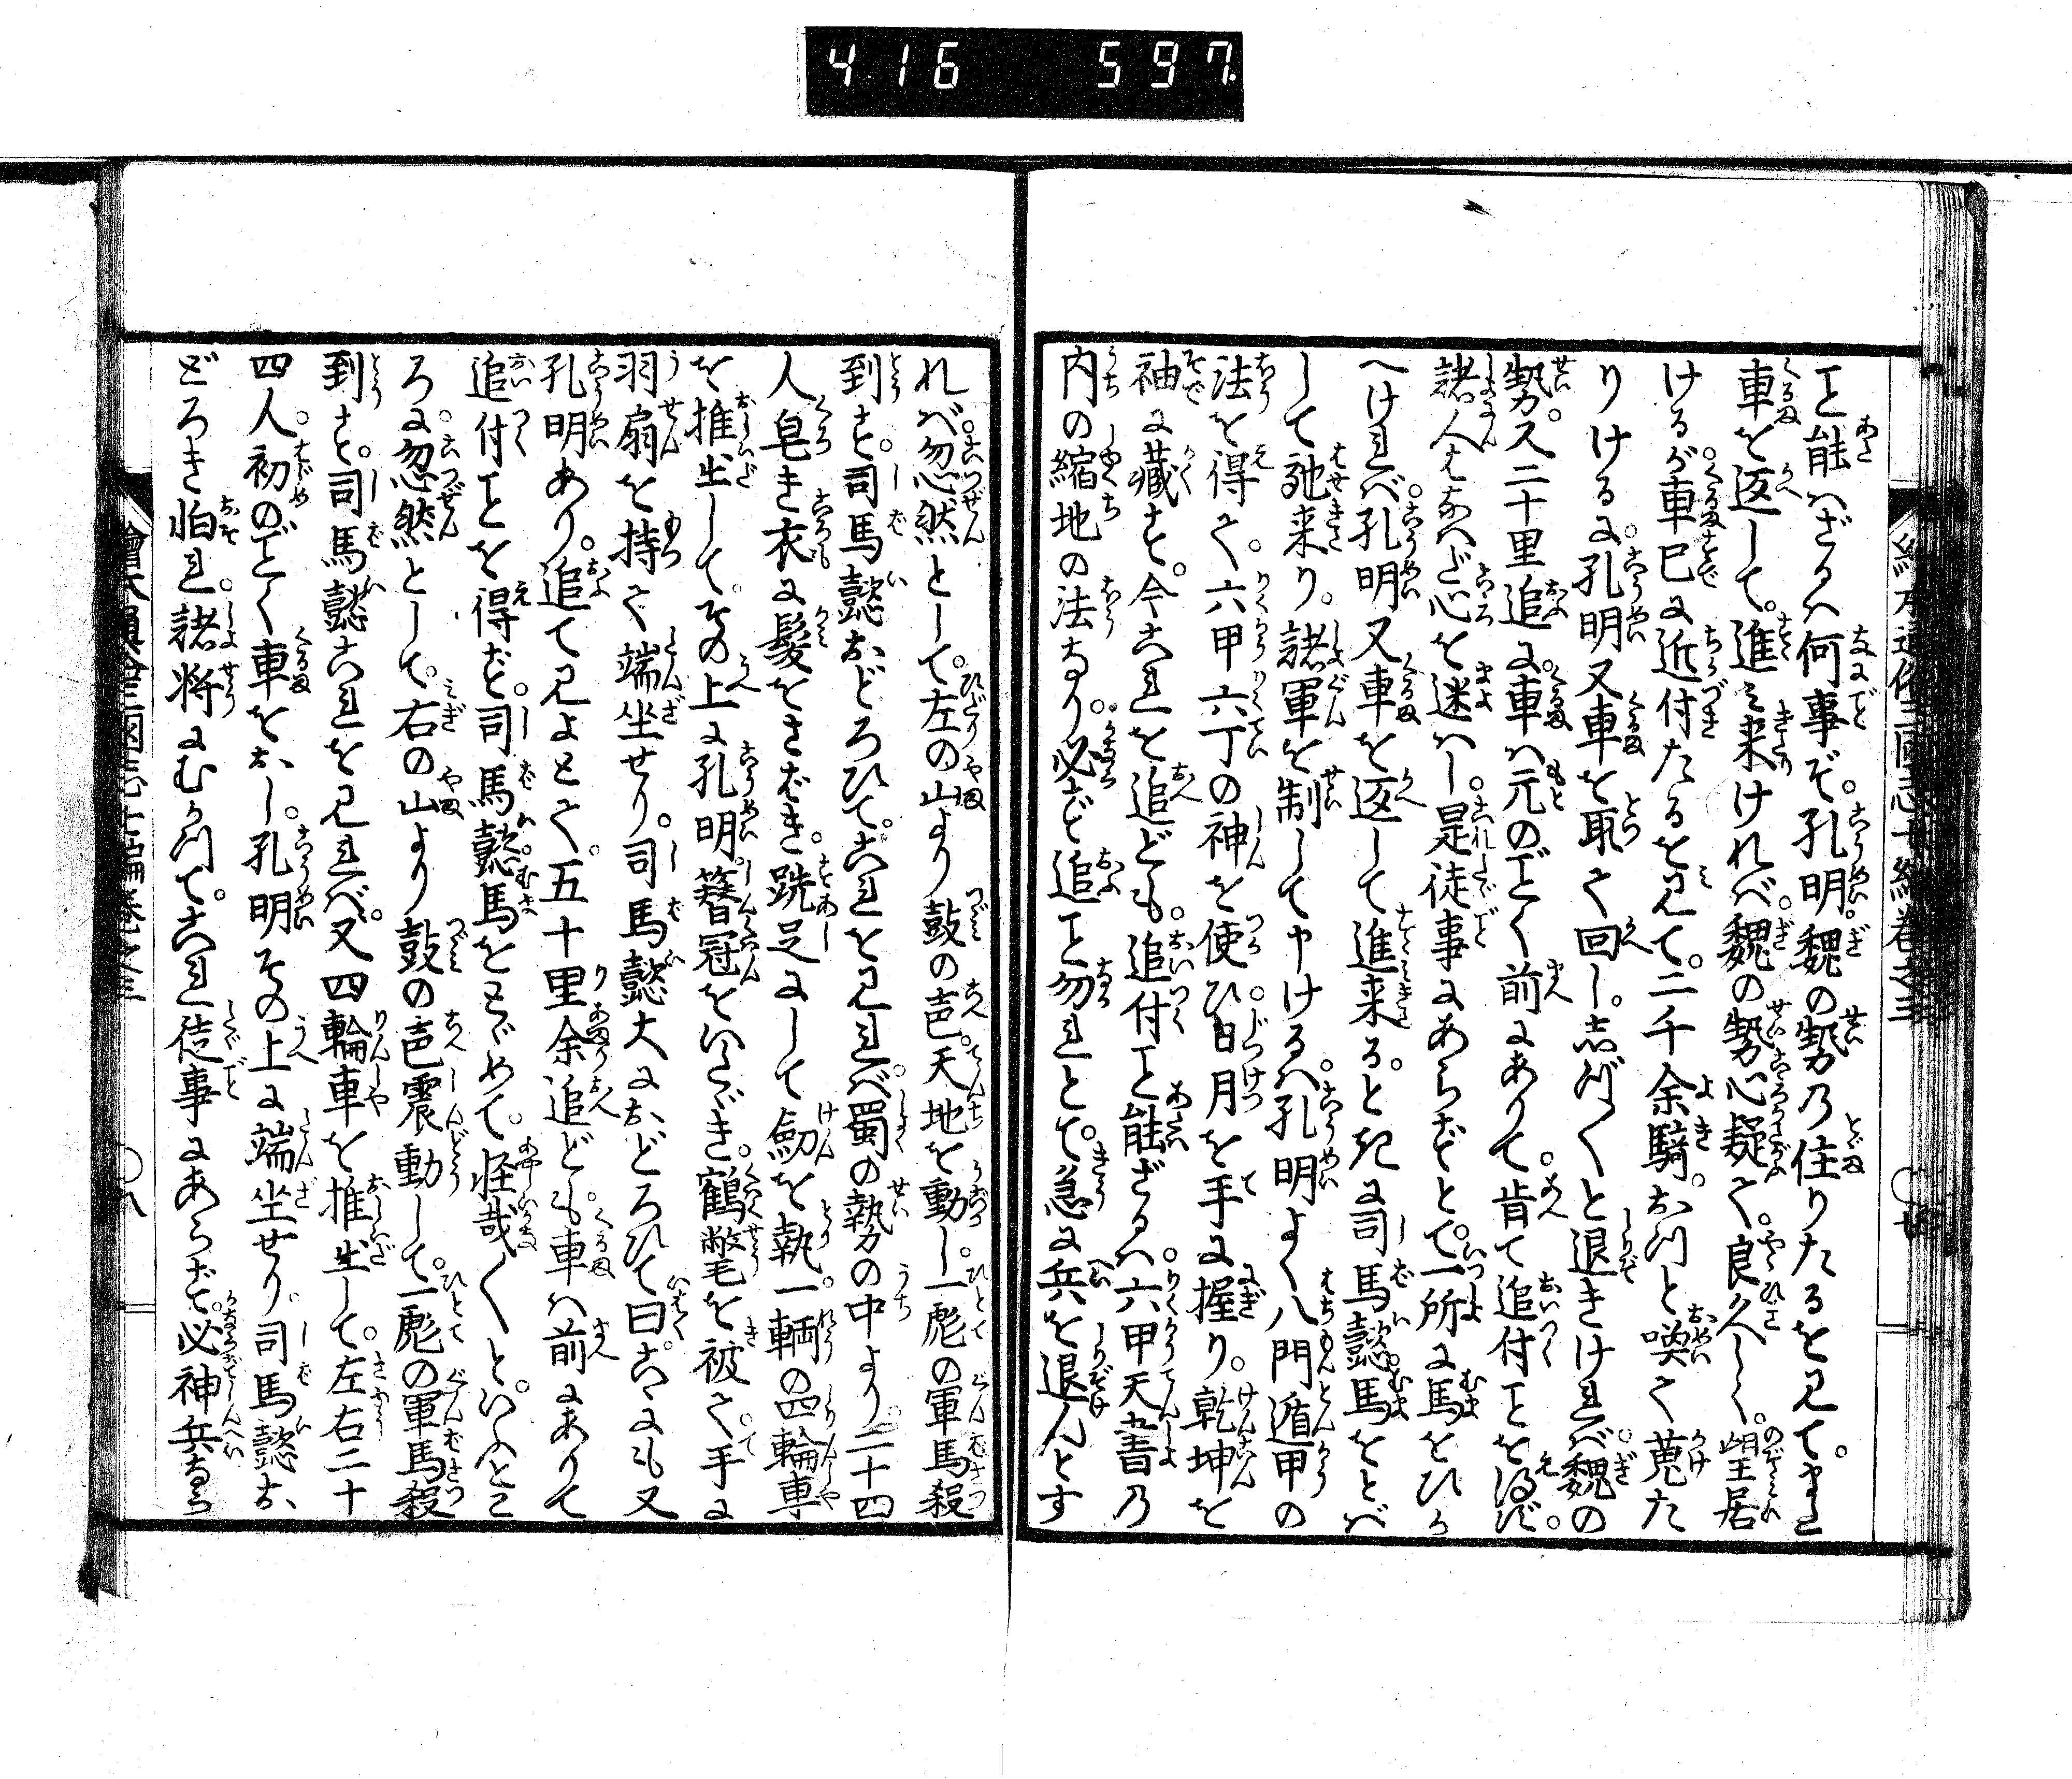 416 597.
繪本通俗三國志七編卷之三
ヿ能ハざるハ何事ぞ。孔明。魏の勢乃住りたるを見て。また
車を返して。進み来ければ。魏の勢心疑て。良久しく。望居
けるが。車已に近付たるを見て。二千余騎。おつと喚て蒐た
りけるに。孔明又車を取て回し。志づ〱と退きけれバ。魏の
勢。又二十里追に。車ハ元のごとく前にありて。肯て追付ヿを得ず。
諸人みな〱ど心を迷ハし。是徒事にあらずとて。一所に馬をひか
へけれバ。孔明又車を返して進来る。ときに司馬懿。馬をとバ
して馳来り。諸軍を制して申けるハ。孔明よく八門遁甲の
法を得て。六甲六丁の神を使ひ。日月を手に握り。乾坤を
袖に藏す。今これを追ども。追付ヿ能ざるハ。六甲天書乃
内の縮地の法なり。必ず追ヿ勿れとて。急に兵を退んとす
れバ。忽然として。左の山より鼓の声。天地を動し。一彪の軍馬殺
到す。司馬懿おどろひて。これを見れバ。蜀の勢の中より。二十四
人皂き衣に髪をさばき。跣足にして劔を執。一輌の四輪車
を推出して。その上に孔明。簪冠をいたゞき。鶴氅を被て。手に
羽扇を持て端坐せり。司馬懿大におどろひて曰。こゝにも又
孔明あり。追て見よとて。五十里余追ども。車ハ前にありて
追付ヿを得ず。司馬懿。馬をとゞめて。怪哉〱と。いふとこ
ろに。忽然として。右の山より鼓の声震動して。一彪の軍馬殺
到す。司馬懿これを見れバ。又四輪車を推出して。左右二十
四人。初のごとく車をおし。孔明その上に端坐せり。司馬懿お
どろき怕れ。諸将にむかつて。これ徒事にあらず。必神兵なら
繪本通俗三國志七編卷之三 ○八